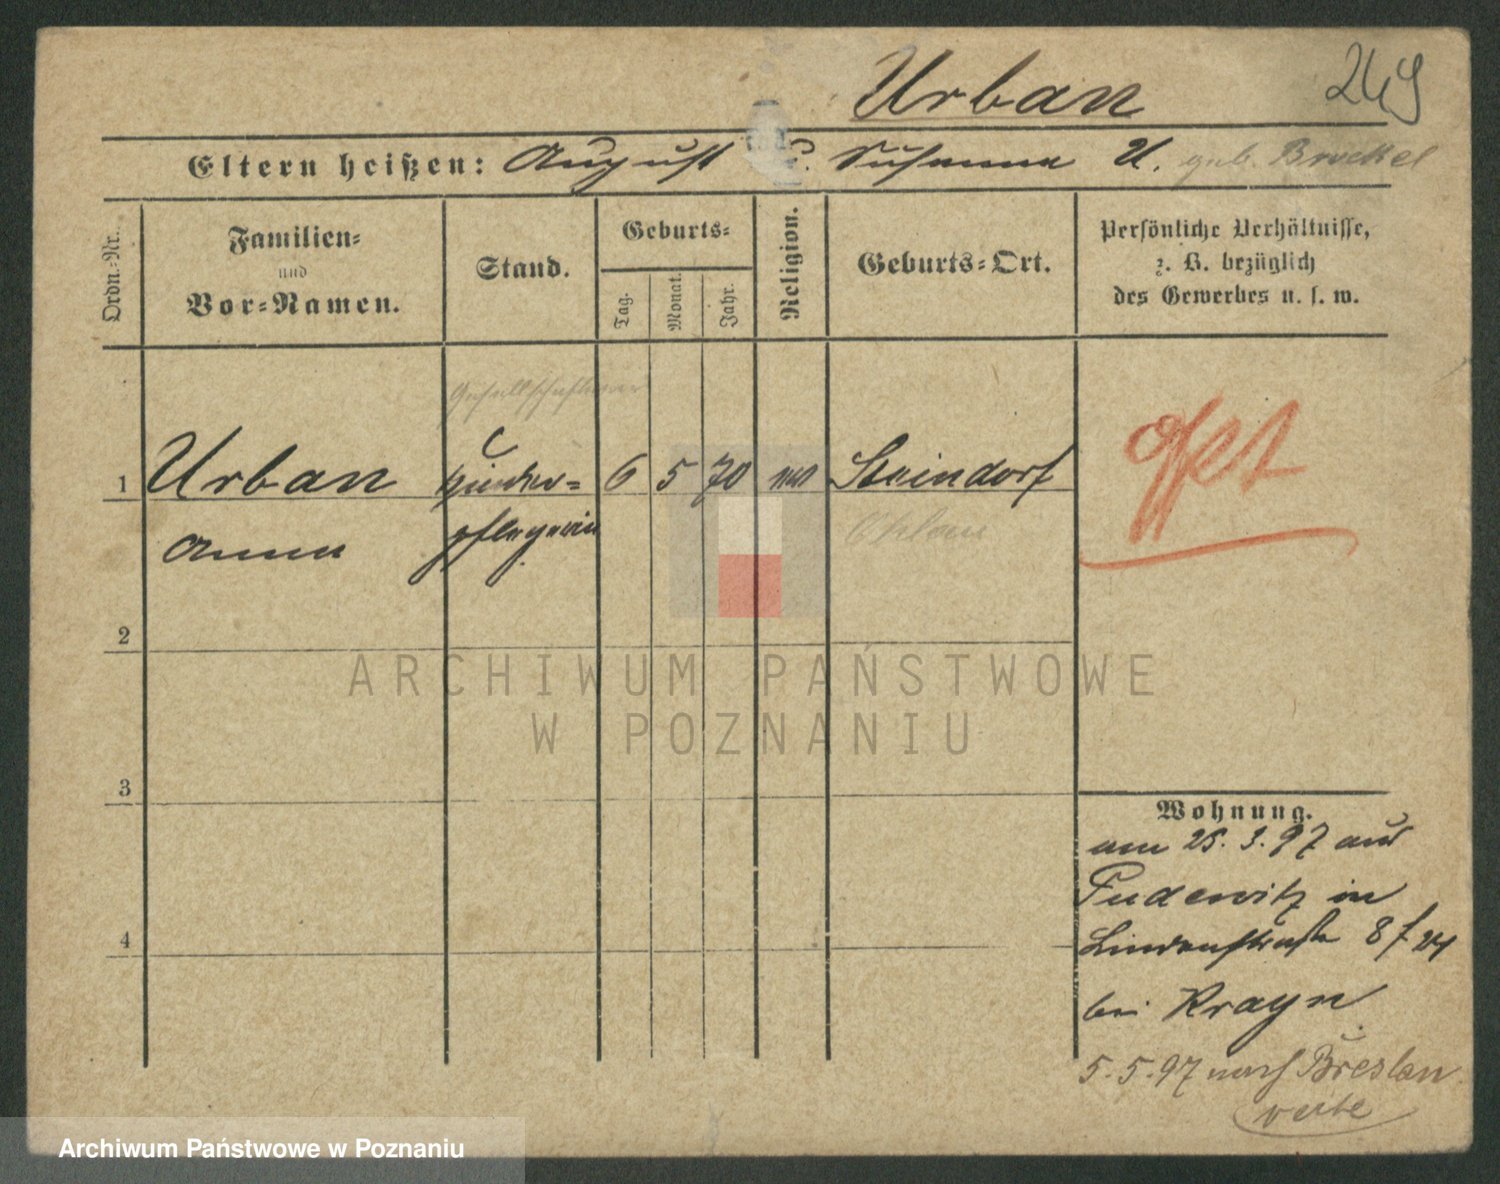 Urban
249
Eltern heißen: August u. Susanna U. geb. Brockel
Ordn.-Nr.
Familien-
und
Vor-Namen.
Stand.
Geburts-
Tag.
Monat.
Jahr.
Religion.
Geburts-Ort.
Persönliche Verhältnisse,
z. B. bezüglich
des Gewerbes u. s. w.
1 Urban Kinder- 6 5 70 Steindorf
Anna pflegerin
Ohlau
2
3
4
Wohnung.
am 25. 3. 97 aus
Pudewitz in
Lindenstraße 8
bei Krayn
5.5.97 nach Breslau
ARCHIWUM PAŃSTWOWE
W POZNANIU
Archiwum Państwowe w Poznaniu